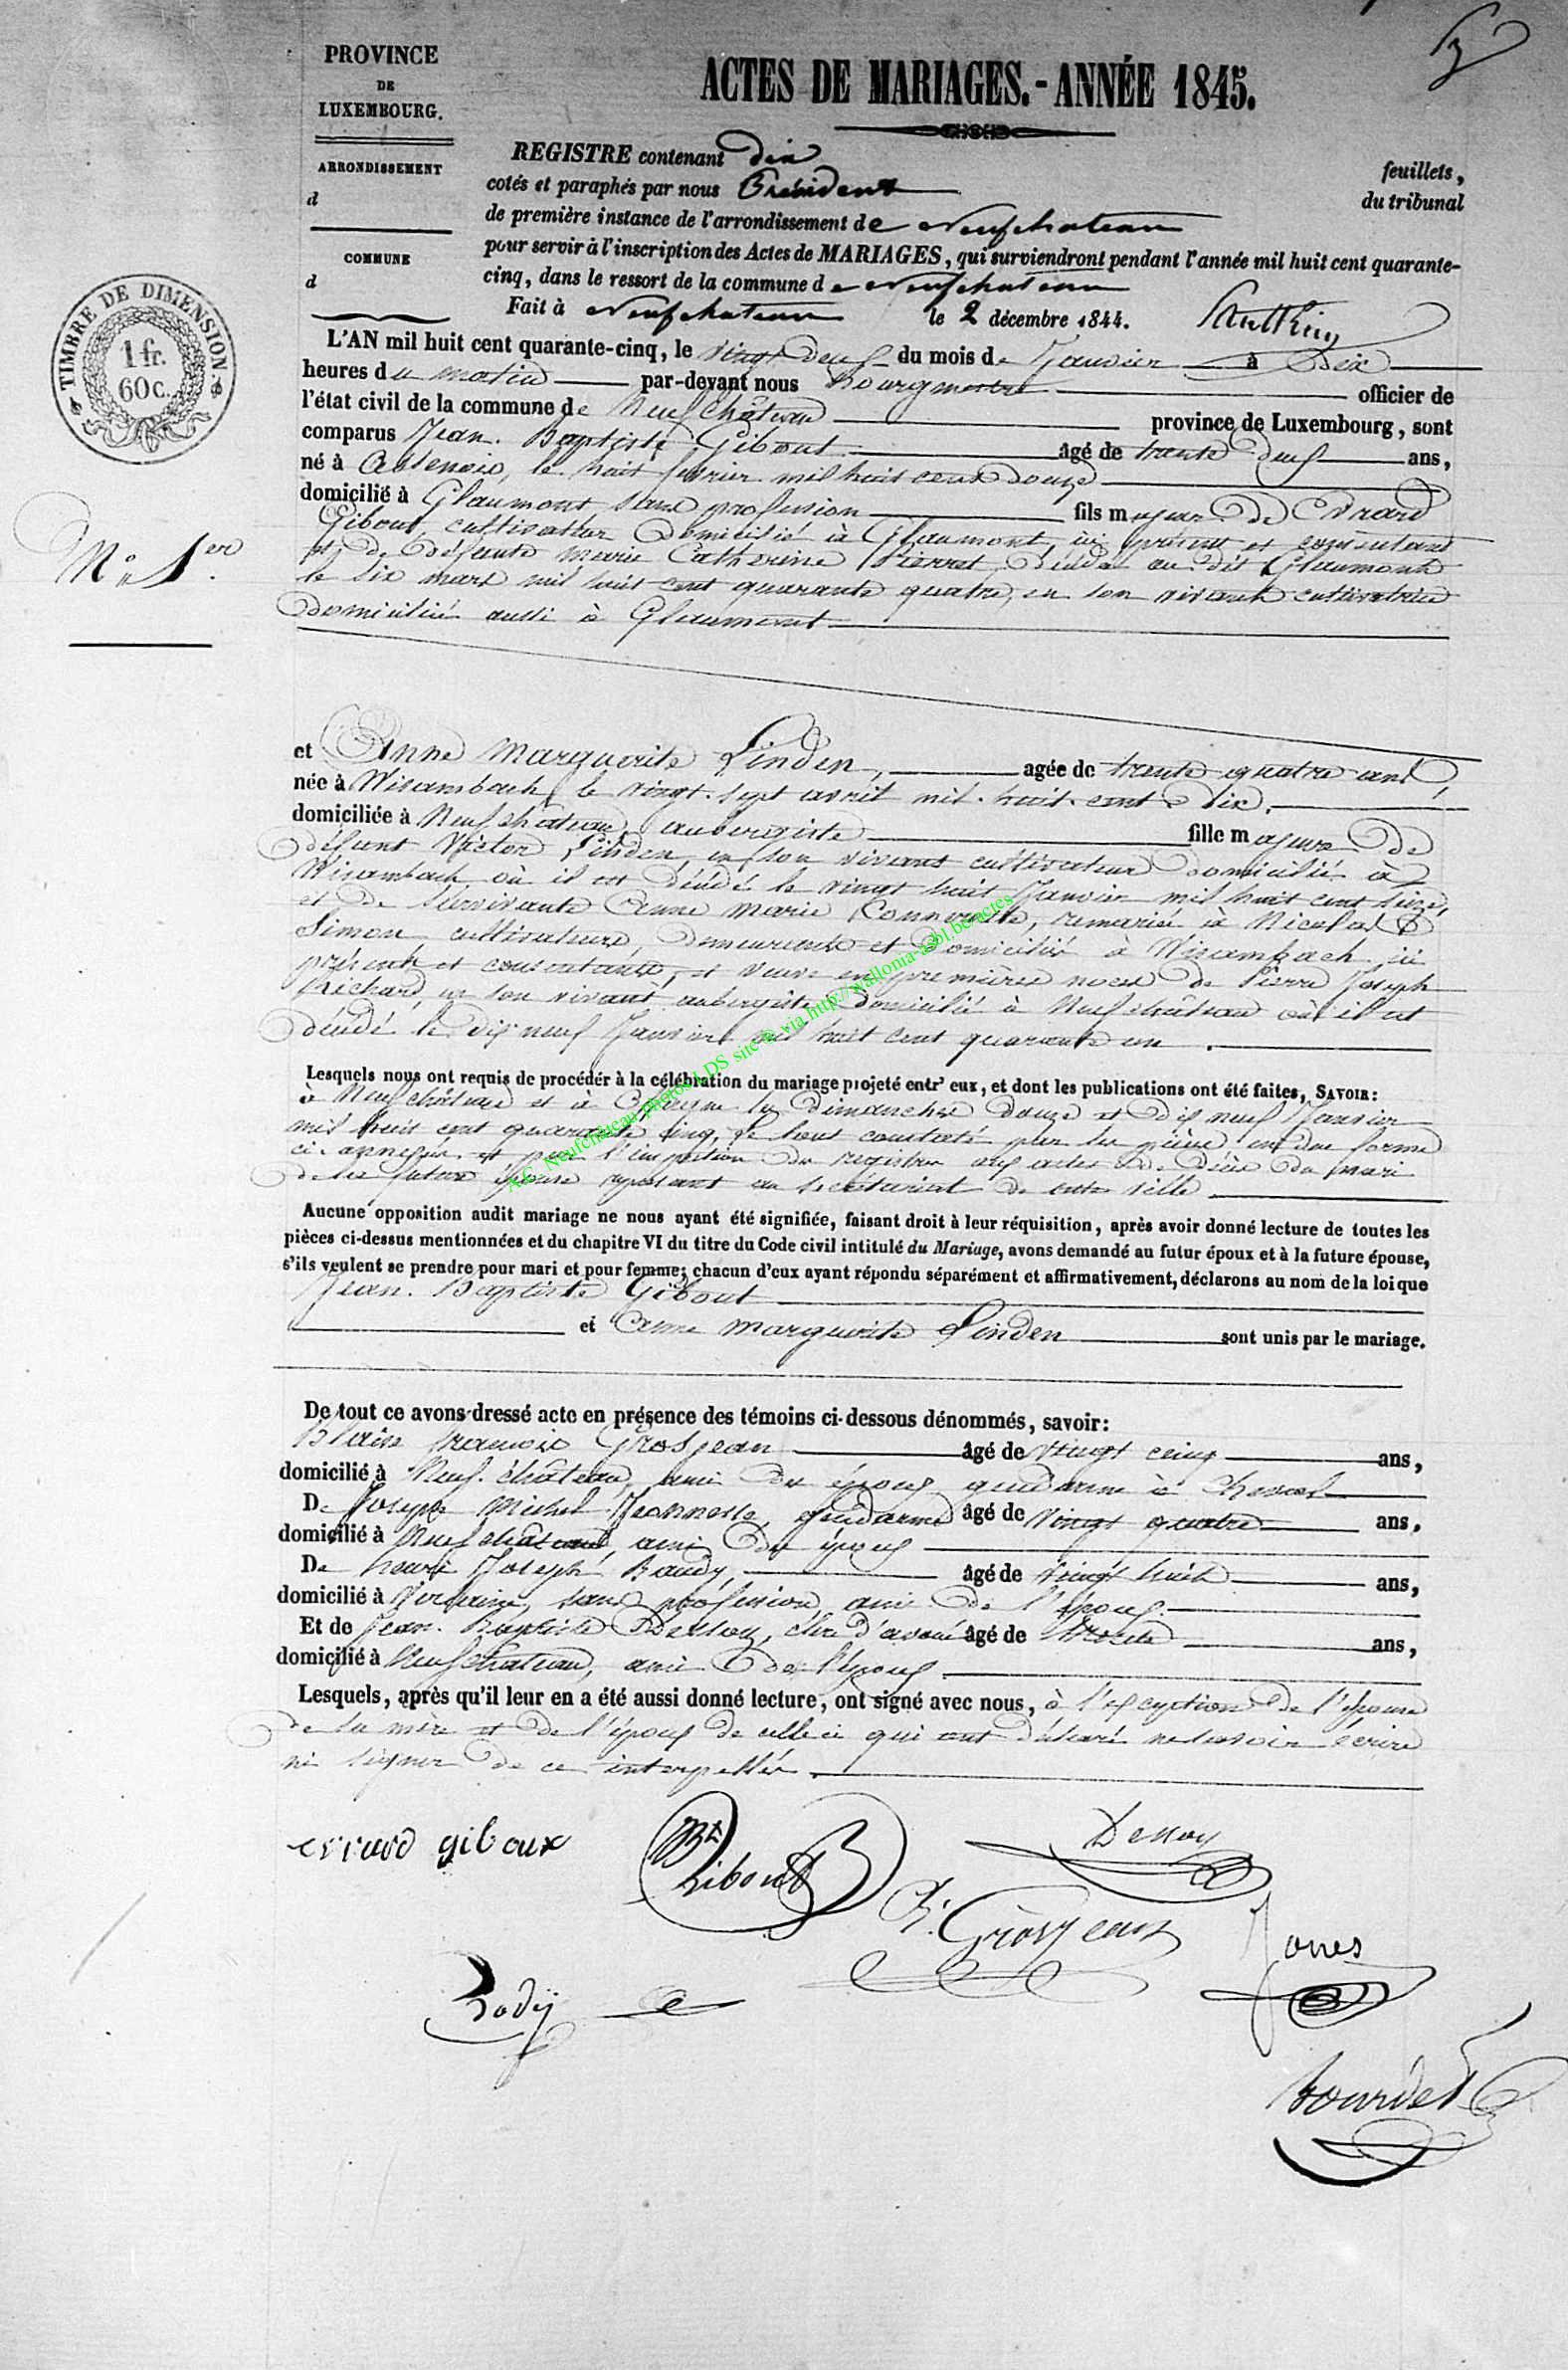 PROVINCE
DE
LUXEMBOURG.
ARRONDISSEMENT
d
COMMUNE
d
TIMBRE DE DIMENSION.
1 fr.
60 c.
N° 1er.
ACTES DE MARIAGES.-ANNÉE 1845.
REGISTRE contenant dix feuillets,
cotés et paraphés par nous Président du tribunal
de première instance de l'arrondissement de Neufchateau
pour servir à l'inscription des Actes de MARIAGES, qui surviendront pendant l'année mil huit cent quarante-
cinq, dans le ressort de la commune de Neufchateau
Fait à Neufchateau le 2 décembre 1844.
L'AN mil huit cent quarante-cinq, le vingt deux du mois de Janvier à Dix
heures du matin par-devant nous Bourgmestre officier de
l'état civil de la commune de Neufchâteau province de Luxembourg, sont
comparus Jean Baptiste Gibout âgé de trente deux ans,
né à Assenois, le huit fevrier mil huit cent douze
domicilié à Glaumont, sans profession fils majeur de Evrard
Gibout, cultivateur domicilié à Glaumont, ici présent et consentant
et de défunte Marie Catherine Pierret, décédée au dit Glaumont
le six mars mil huit cent quarante quatre, en son vivant cultivatrice
domiciliée aussi à Glaumont
et Anne Marguerite Linden, agée de trente quatre ans,
née à Wisembach, le vingt-sept avril mil-huit-cent-dix,
domiciliée à Neufchateau, aubergiste fille majeure de
défunt Victor Linden, en son vivant cultivateur domicilié à
Wisembach où il est décédé le vingt huit Janvier mil huit cent
et de survivante Anne Marie remariée à Nicolas
Simon, cultivateurs, demeurant et domiciliés à Wisembach, ici
présents et consentants, et veuve en premières noces de Pierre Joseph
Richard, en son vivant aubergiste domicilié à Neufchâteau où il est
décédé le dix neuf Janvier mil huit cent quarante un.
A.C. Neufchâteau photos LDS site © via http://wallonia-asbl.be/actes
Lesquels nous ont requis de procéder à la célébration du mariage projeté entr' eux, et dont les publications ont été faites, SAVOIR:
à Neufchâteau et à les dimanches douze et dix neuf Janvier
mil huit cent quarante cinq, le tout constaté par les pièces en due forme
ci-annexées et par l'inspection du registre aux actes de décès du mari
de la future épouse reposant au secrétariat de cette ville
Aucune opposition audit mariage ne nous ayant été signifiée, faisant droit à leur réquisition, après avoir donné lecture de toutes les
pièces ci-dessus mentionnées et du chapitre VI du titre du Code civil intitulé du Mariage, avons demandé au futur époux et à la future épouse,
s'ils veulent se prendre pour mari et pour femme; chacun d'eux ayant répondu séparément et affirmativement, déclarons au nom de la loi que
Jean Baptiste Gibout
et Anne Marguerite Linden sont unis par le mariage.
De tout ce avons dressé acte en présence des témoins ci-dessous dénommés, savoir:
Blaise François Grosjean âgé de vingt cinq ans,
domicilié à Neufchâteau, ami de époux gendarme à cheval
De Joseph Michel gendarme âgé de vingt quatre ans,
domicilié à Neufchâteau, ami de époux
De henri Joseph âgé de vingt huit ans,
domicilié à sans profession, ami de l'époux
Et de Jean Baptiste Dessoy, clerc d'avoué âgé de trente ans,
domicilié à Neufchateau, ami de l'époux
Lesquels, après qu'il leur en a été aussi donné lecture, ont signé avec nous, à l'exception de l'épouse
de la mère et de l'époux de celle ci qui ont déclaré ne savoir écrire
ni signer de ce interpellés.
evrard giboux
Bte Gibout
Dessoy
B. Grosjean
Rodÿ
Bourdet